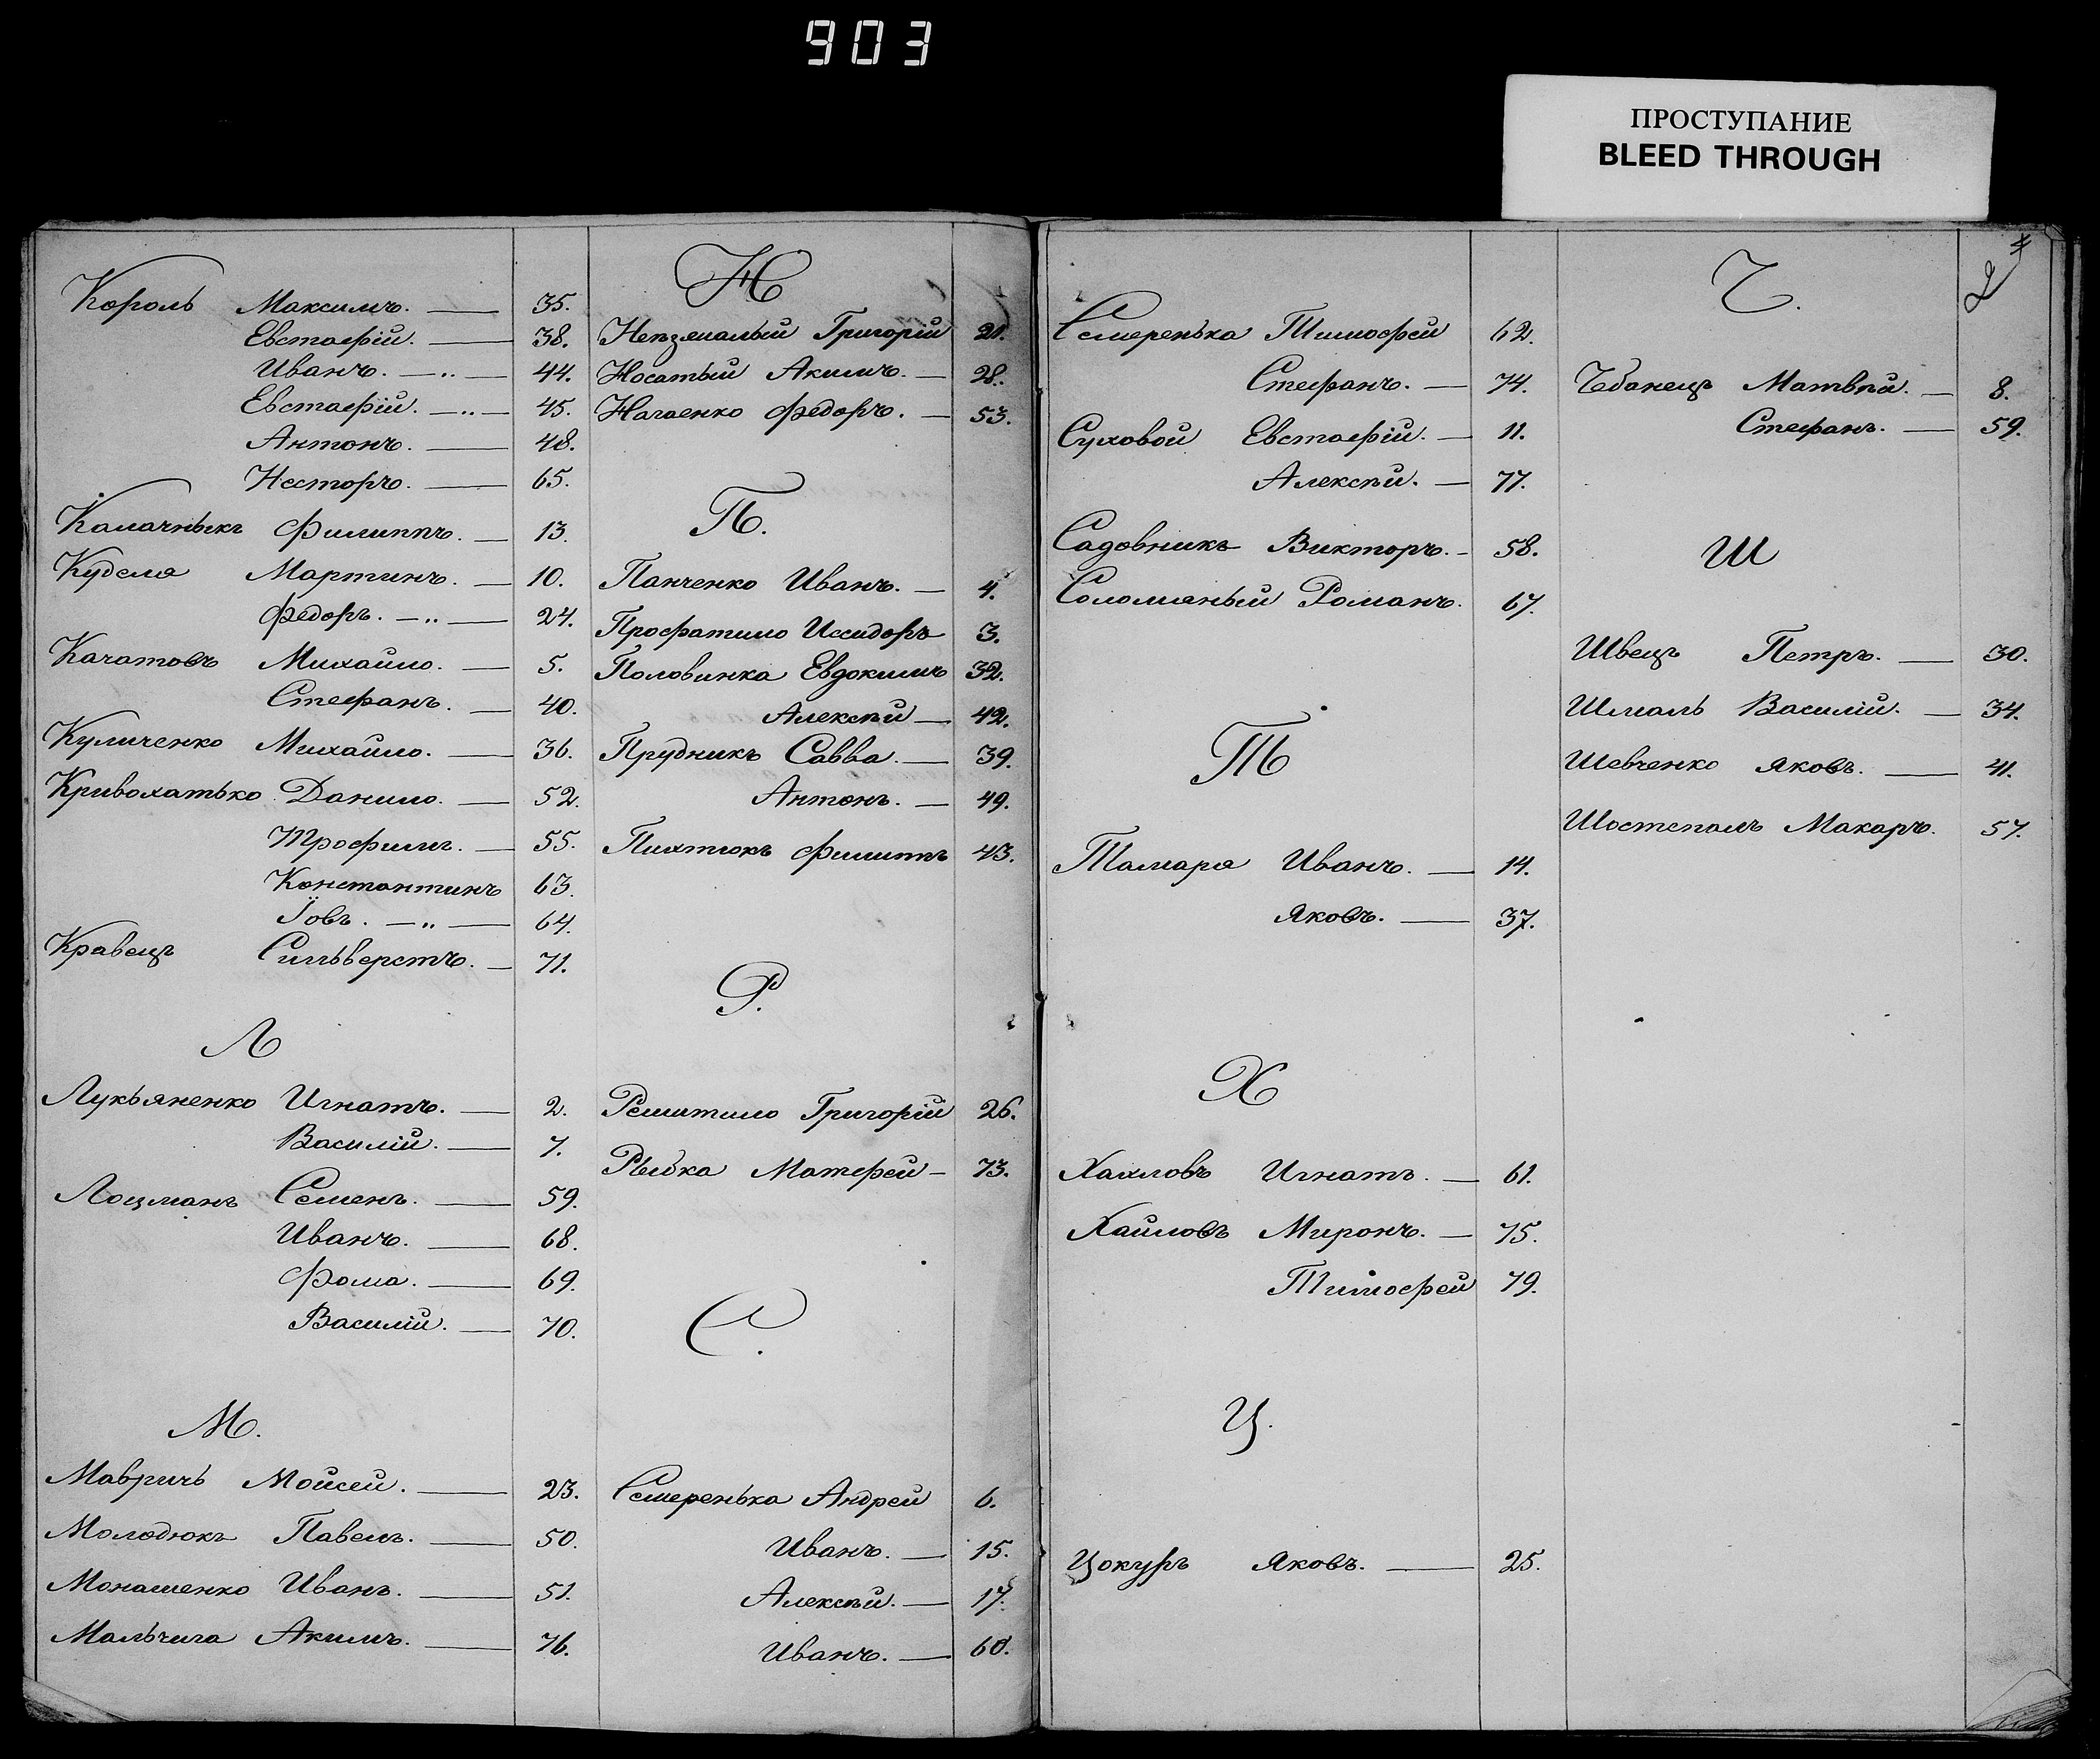 903
ПРОСТУПАНИЕ
BLEED THROUGH
Король Максимъ. — 35.
Евстафій. — 38.
Иванъ. — „ — 44.
Евстафій. — „ — 45.
Антонъ. — 48.
Несторъ. — 65.
Калачныкъ Филиппъ. — 13.
Куделя Мартинъ. — 10.
Федоръ. — „ — 24.
Качатовъ Михайло. — 5.
Стефанъ. — 40.
Куличенко Михайло. — 36.
Кривохатько Данило. — 52.
Трофимъ. — 55.
Константинъ 63.
Іовъ. — „ — 64.
Кравецъ Сильверстъ. — 71.
Л
Лукьяненко Игнатъ. — 2.
Василій. — 7.
Лоцманъ Семенъ. — 59.
Иванъ. — 68.
Фома. — 69.
Василій. — 70.
М.
Мавричъ Мойсей. — 23.
Молодюкъ Павелъ. — 50.
Монашенко Иванъ. — 51.
Мальчига Акимъ. — 76.
Н
Григорій 21.
Носатый Акимъ. — 28.
Нагаенко Федоръ. — 53.
П.
Панченко Иванъ. — 4.
Профатило Иссидоръ 3.
Половинка Евдокимъ 32.
Алексѣй — 42.
Прудникъ Савва. — 39.
Антонъ. — 49.
Пихтюкъ Филиппъ 43.
Р.
Решитило Григорій 26.
Рыбка Матфей — 73.
С.
Семеренька Андрей 6.
Иванъ. — 15.
Алексѣй. — 17.
Иванъ. — 60.
4
2
Семеренька Тимофей 62.
Стефанъ. — 74.
Суховой Евстафій. — 11.
Алексѣй. — 77.
Садовникъ Викторъ. – 58.
Соломяный Романъ. 67.
Т
Тамара Иванъ. — 14.
Яковъ. — 37.
Х
Хахловъ Игнатъ. — 61.
Хайловъ Миронъ. — 75.
Тимофей 79.
Ц.
Цокуръ Яковъ. — 25.
Ч.
Чебанецъ Матвѣй. — 8.
Стефанъ. — 59.
Ш
Швецъ Петръ. — 30.
Шмаль Василій. — 34.
Шевченко Яковъ. — 41.
Шостепалъ Макаръ. 57.